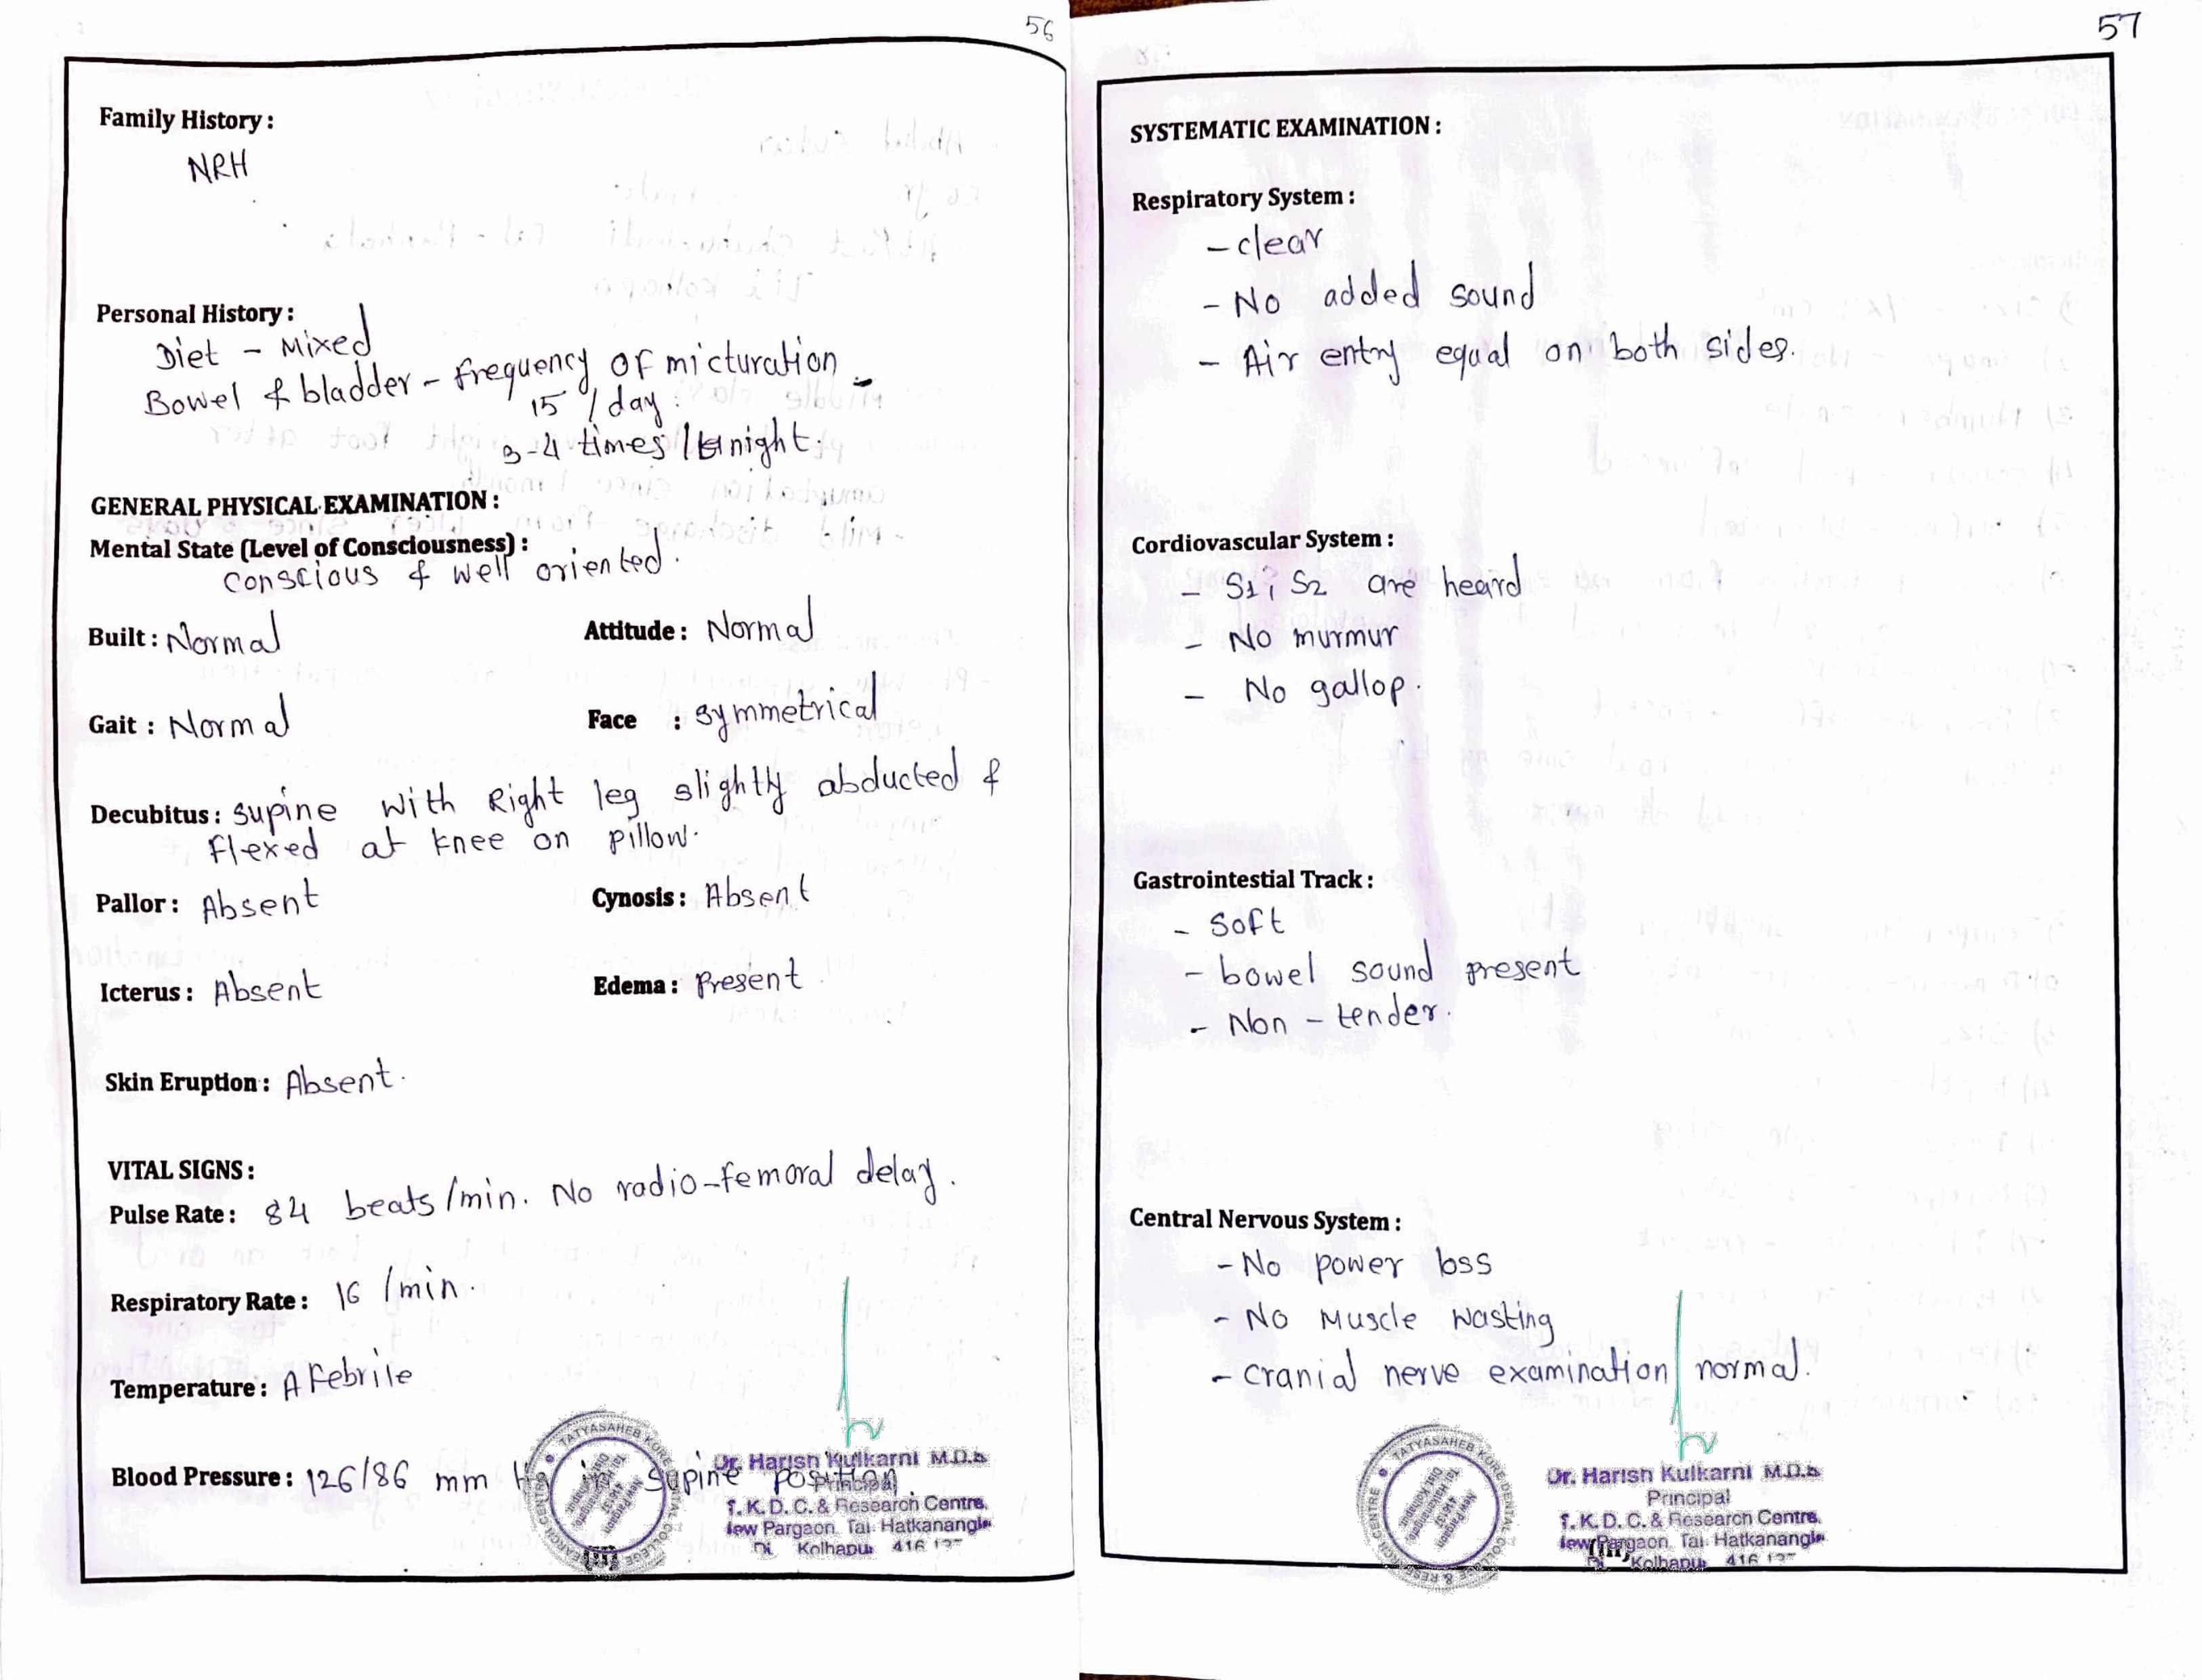 56
Family History :
NRH
Personal History :
Diet - Mixed
Bowel & bladder - frequency of micturation -
15 / day.
3-4 times / night.
GENERAL PHYSICAL EXAMINATION :
Mental State (Level of Consciousness) :
Conscious & well oriented.
Built : Normal Attitude : Normal
Gait : Normal Face : symmetrical
Decubitus : supine with Right leg slightly abducted &
flexed at knee on pillow.
Pallor : Absent Cynosis : Absent
Icterus : Absent Edema : Present
Skin Eruption : Absent.
VITAL SIGNS :
Pulse Rate : 84 beats/min. No radio-femoral delay.
Respiratory Rate : 16 /min.
Temperature : AFebrile
Blood Pressure : 126/86 mm Hg in supine position.
TATYASAHEB KORE DENTAL COLLEGE & RESEARCH CENTRE
New Pargaon
Dr. Harish Kulkarni M.D.S
Principal
T. K. D. C. & Research Centre,
New Pargaon. Tal. Hatkanangle
Di. Kolhapur 416 137
57
SYSTEMATIC EXAMINATION :
Respiratory System :
- clear
- No added sound
- Air entry equal on both sides.
Cordiovascular System :
- S1; S2 are heard
- No murmur
- No gallop.
Gastrointestial Track :
- Soft
- bowel sound present
- Non - tender.
Central Nervous System :
- No power loss
- No Muscle wasting
- cranial nerve examination normal.
TATYASAHEB KORE DENTAL COLLEGE & RESEARCH CENTRE
New Pargaon
Dr. Harish Kulkarni M.D.S
Principal
T. K. D. C. & Research Centre,
New Pargaon. Tal. Hatkanangle
Di. Kolhapur 416 137